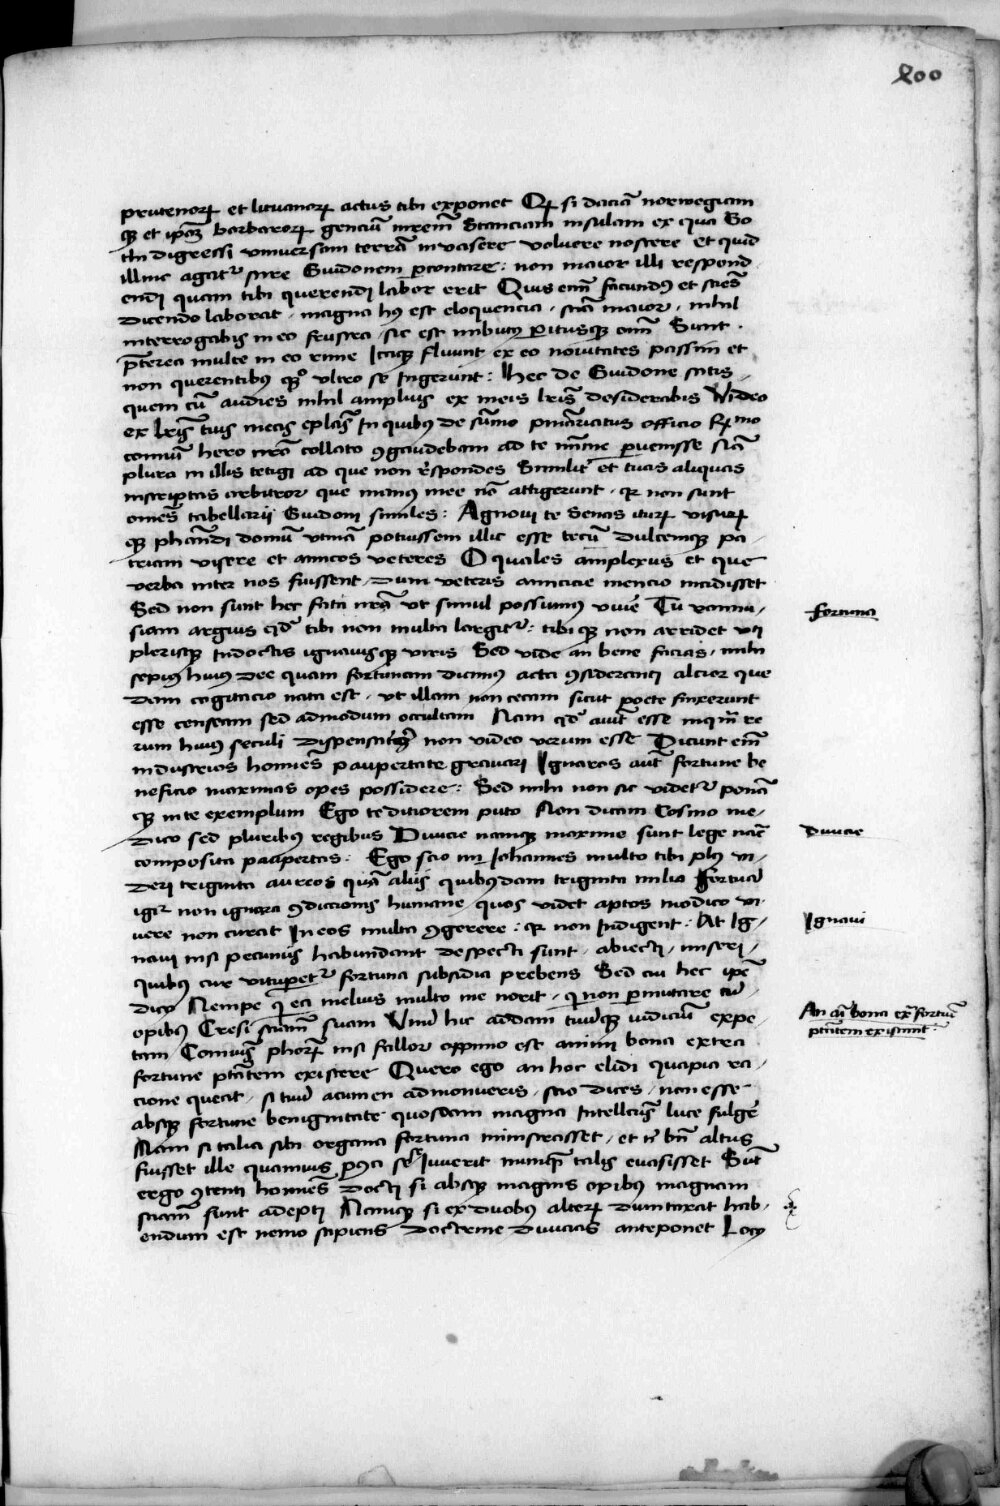 200
prutenoꝝ et lituanoꝝ actus tibi exponet Qꝫ si daciā norwegiam
qꝫ et ip̄aꝫ barbaroꝝ genciū mrem̄ Stanciam insulam ex qua Go
thi digressi vniuersam terrā inuasere voluere noscere et quid
illinc agatʳ scire Guidonem ꝑcontare : non maior illi respond
endi quam tibi querendi labor erit Quis em̄ facundꝰ et sciēs
dicendo laborat . magna hꝰ est eloquencia . sciā maior . nihil
interrogabis in eo frustra . sic est imbutꝰ ꝑitusqꝫ om̄ Sunt .
p̄terea multe in eo rime Itaqꝫ fluunt ex eo nouitates passim et
non querentibꝰ qꝫ vltro se Ingerunt : Hec de Guidone satis .
quem cū audies nihil amplius ex meis lr̄is desiderabis Video
ex lr̄is tuis meas ep̄las In quibꝰ de sūmo pmāriatus officio
comuni hero nr̄o collato ꝯgaudebam ad te mīme ꝑuenisse Nā
plura in illis tetigi ad que non r̄spondes Similit̄ et tuas aliquas
inscriptas arbitror que manꝰ mee nō attigerunt . qꝛ non sunt
omēs tabellarii Guidoni similes : Agnoui te Senas ituꝝ visuꝝ
qꝫ domū vtinā potuissem illic esse tecū dulcemqꝫ pa-
triam visere et amicos veteres O quales amplexus et que
verba inter nos fuissent . dum veteris amicicie mencio incidisset
Sed non sunt hec fata nr̄a vt simul possimus viuē Tu
siam tibi non multa largitʳ : tibi qꝫ non arridet vti
plerisqꝫ Indoctis ignauisqꝫ viris Sed vide an bene facias . mihi
sepius huiꝰ dee quam fortunam dicimꝰ acta ꝯsideranti alcior que
dam cogitacio nata est . vt illam non cecam sicut poete finxerunt
esse censeam sed admodum occultam Nam qd̄ aiūt esse re
rum huiꝰ seculi non video verum esse Dicunt em̄
industrios homīes paupertate grauari Ignaros aūt fortune be
neficio maximas opes possidere : Sed mihi non sic videtʳ ponā
qꝫ in te exemplum Ego te diciorem puto Non dicam Cosmo me-
dico sed pluribꝰ regibus Diuicie namqꝫ maxime sunt lege
composita paupertas : Ego scio mi Iohannes multo tibi plꝰ vi-
deri triginta aureos quā aliis quibꝰdam triginta milia Fortuā
igiʳ non ignara ꝯdicionis humane . quos videt aptos modico vi-
uere non curat In eos multa ꝯgerere : qꝛ non Indigent : At Ig-
naui nisi pecuniis habundant despecti sunt . abiecti . miseri .
quibus cur vituperetʳ fortuna subsidia prebens Sed cui hec ip̄e
dico Nempe qī ea melius multo me norit . qī non ꝑmutare cū
opibꝰ Cresi sciam̄ suam Vnū hic addam tuūqꝫ iudiciū expe-
tam Comuis phoꝝ nisi fallor oppinio est animi bona extra
fortune ptātem existere Quero ego an hoc elidi quapia ra-
cione queat . si tuū acumen admonueris . scio dices . non esse
absqꝫ fortune benignitate quosdam magna Intellctꝰ luce fulgē
Nam si talia sibi organa fortuna ministrasset . et tn̄ bn̄ altus
fuisset ille quamuis se Iuuerit nunqꝫ talis euasisset Sūt
ergo ꝯtenti homīes docti si absqꝫ magnis opibus magnam
sciam̄ sunt adepti Namqꝫ si ex duobꝰ alteꝝ dumtaxat hab-
endum est nemo sapiens doctrine diuicias anteponet
fortuna
Diuicie
Ignaui
An aī bona ex̄ fortūe
ptātem existunt